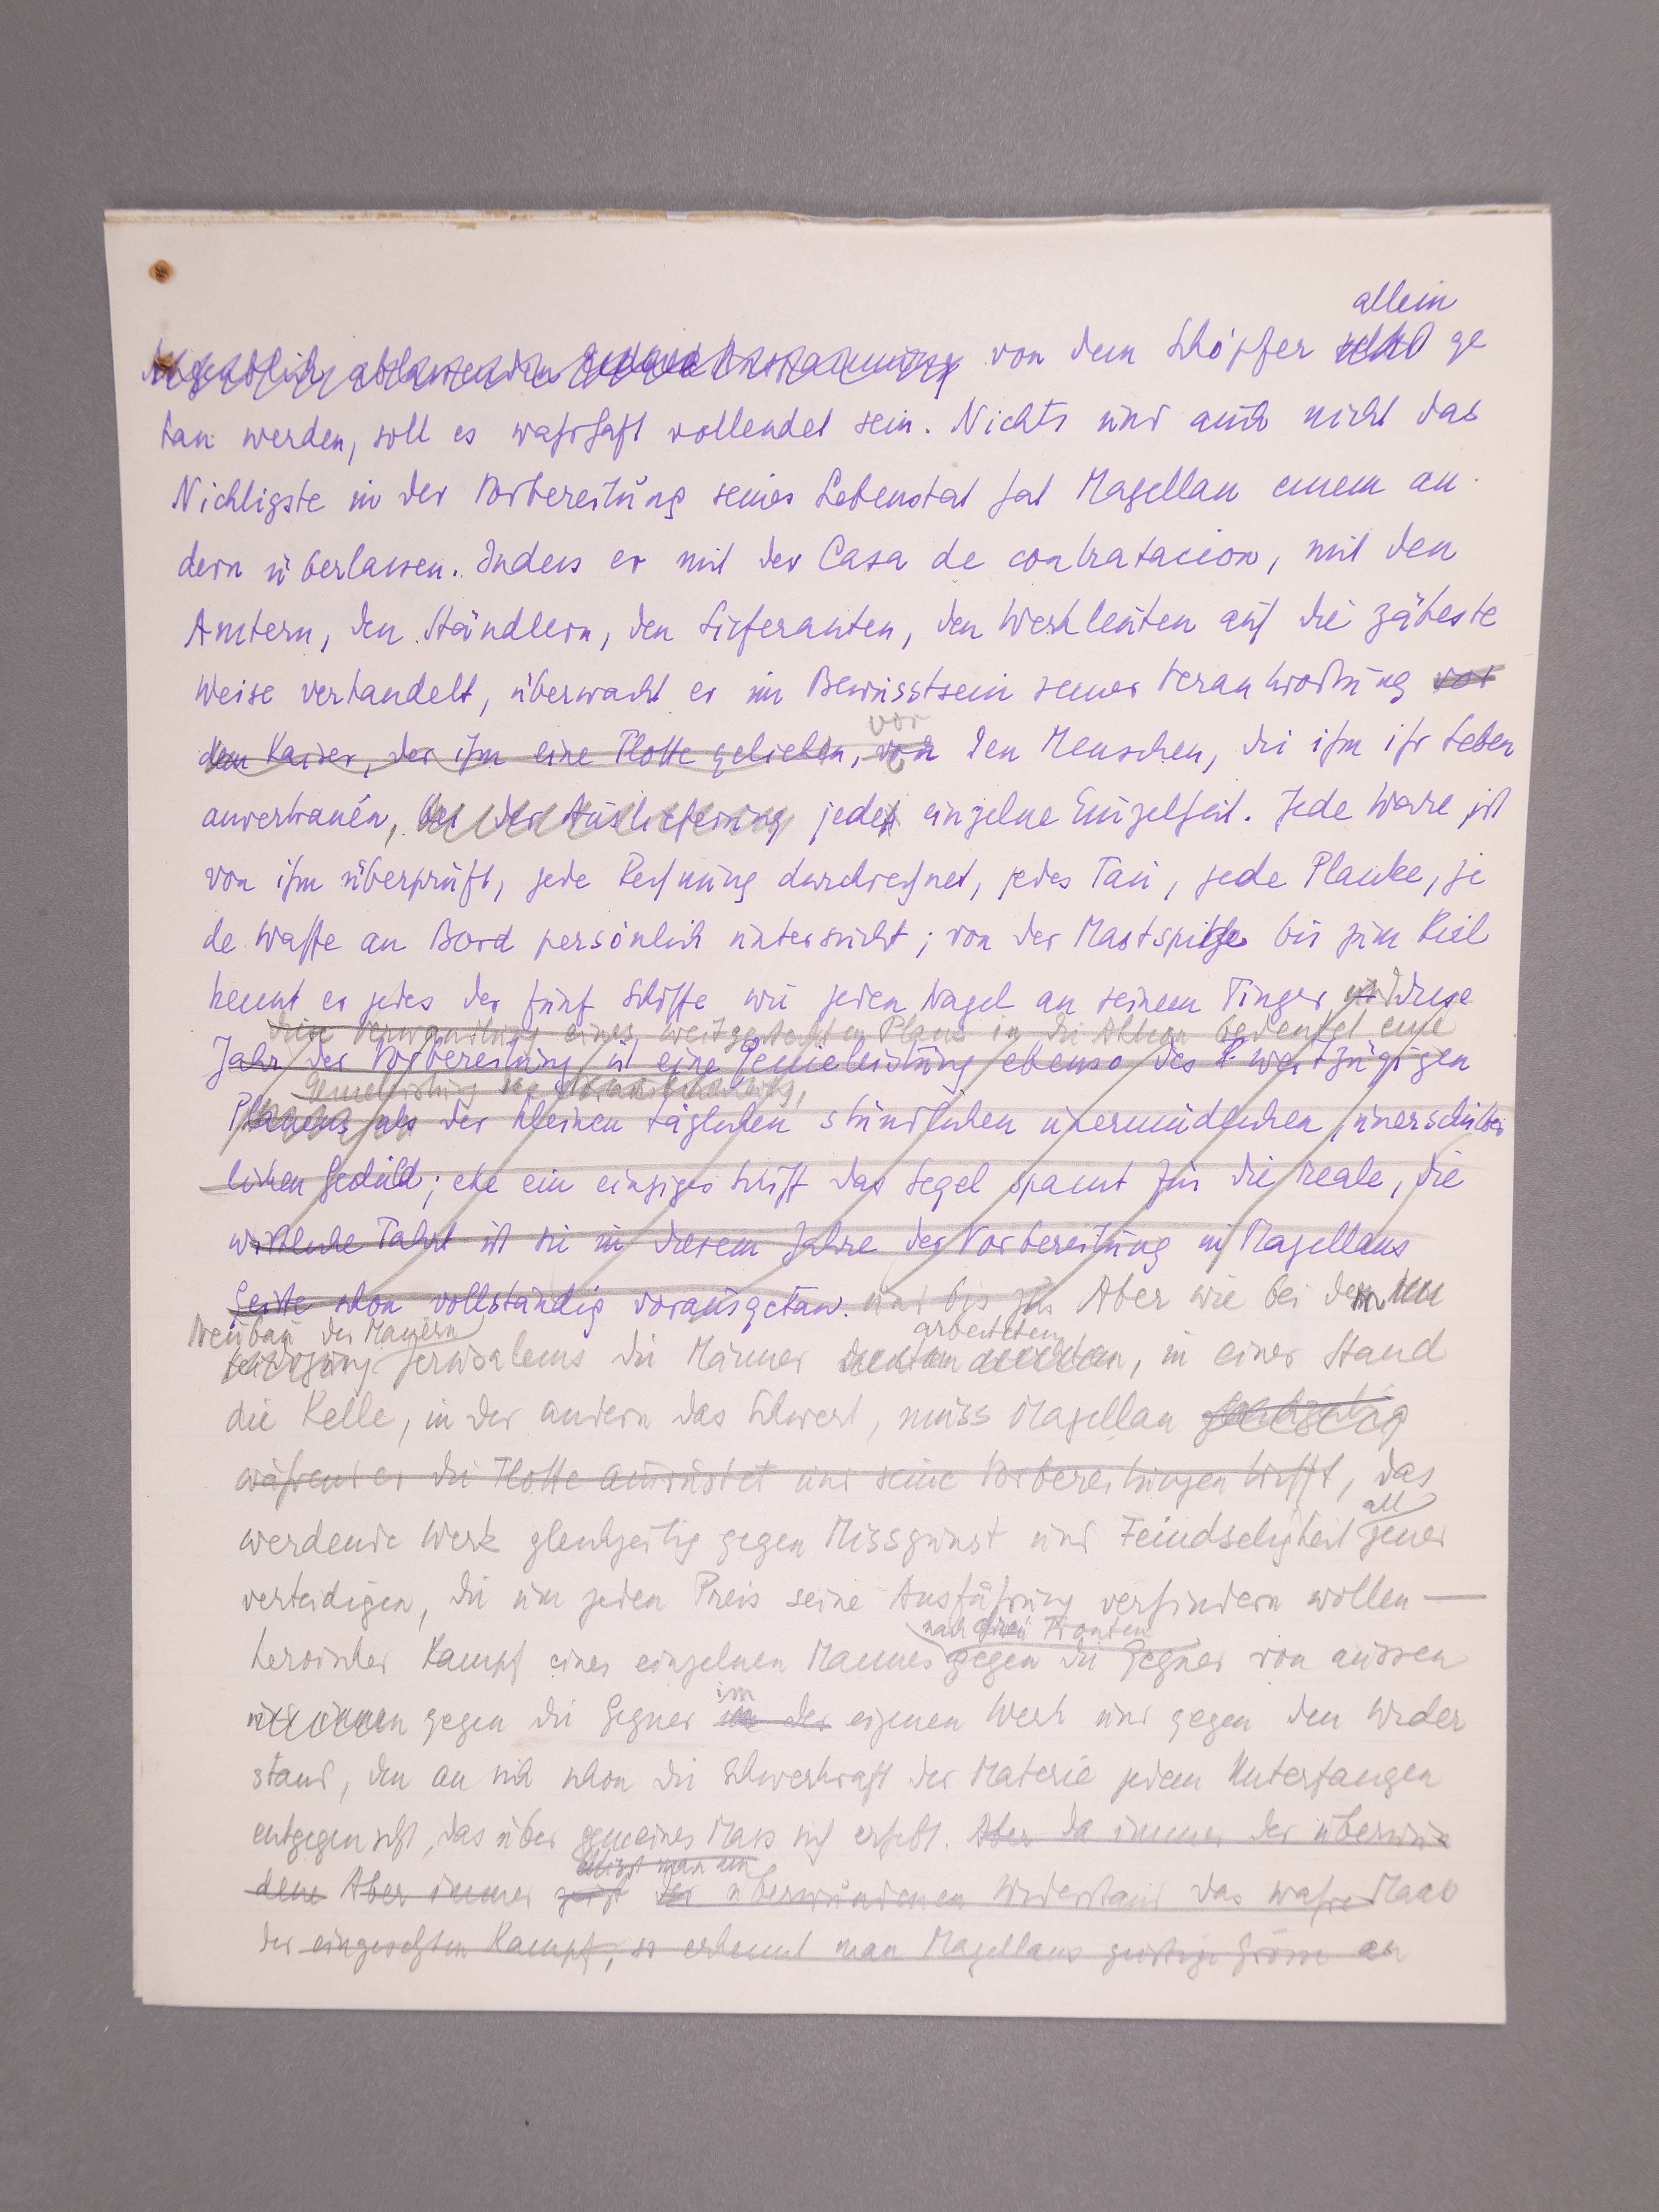 allein
von dem Schöpfer selbst ge
tan werden, soll es wahrhaft vollendet sein. Nichts und auch nicht das
Nichtigste in der Vorbereitung seiner Lebenstat hat Magellan einem an
dern überlassen. Indess er mit der Casa de contratacion, mit den
Amtern, den Händlern, den Lieferanten, den Werkleuten auf die zäheste
Weise verhandelt, überwacht er im Bewusstsein seiner Verantwortung vor
vor
dem Kaiser, der ihm eine Flotte geliehen, von den Menschen, die ihm ihr Leben
anvertrauen, bei der Auslieferung jede einzelne Einzelheit. Jede Ware ist
von ihm überprüft, jede Rechnung durchrechnet, jedes Tau, jede Planke, je
de Waffe an Bord persönlich untersucht; von der Mastspitze bis zum Kiel
kennt er jedes der fünf Schiffe wie jeden Nagel an seinem Finger und diese
Die Verwandlung eines weitgehenden Plans in die Aktion bedeutet eine
Jahr der Vorbereitung ist eine Genieleistung ebenso des weitzügigen
Genieleistung
Planens als der kleinen täglichen stündlichen unermüdlichen, unerschütter
lichen Geduld; ehe ein einziges Schiff das Segel spannt für die reale, die
wirkliche Fahrt ist sie in diesem Jahre der Vorbereitung in Magellans
Geiste schon vollständig vorausgetan. und bis zur Aber wie bei dem
Neubau der Mauern arbeiteten
Jerusalems die Männer, in einer Hand
die Kelle, in der andern das Schwert, muss Magellan gleichzeitig
während er die Flotte ausrüstet und seine Vorbereitungen trifft, das
all
werdende Werk gleichzeitig gegen Missgunst und Feindseligkeit jener
verteidigen, die um jeden Preis seine Ausführung verhindern wollen —
nach drei Fronten
heroischer Kampf eines einzelnen Mannes gegen die Gegner von aussen
im
gegen die Gegner in der eigenen Werk und gegen den Wider
stand, den an sich schon die Schwerkraft der Materie jedem Unterfangen
entgegensetzt, das über gemeines Mass sich erhebt. Aber da immer der überwun
misst man am
dene Aber immer zeigt der überwundenen Widerstand das wahre Maas
der eingesetzten Kampf, so erkennt man Magellans geistige Grösse an